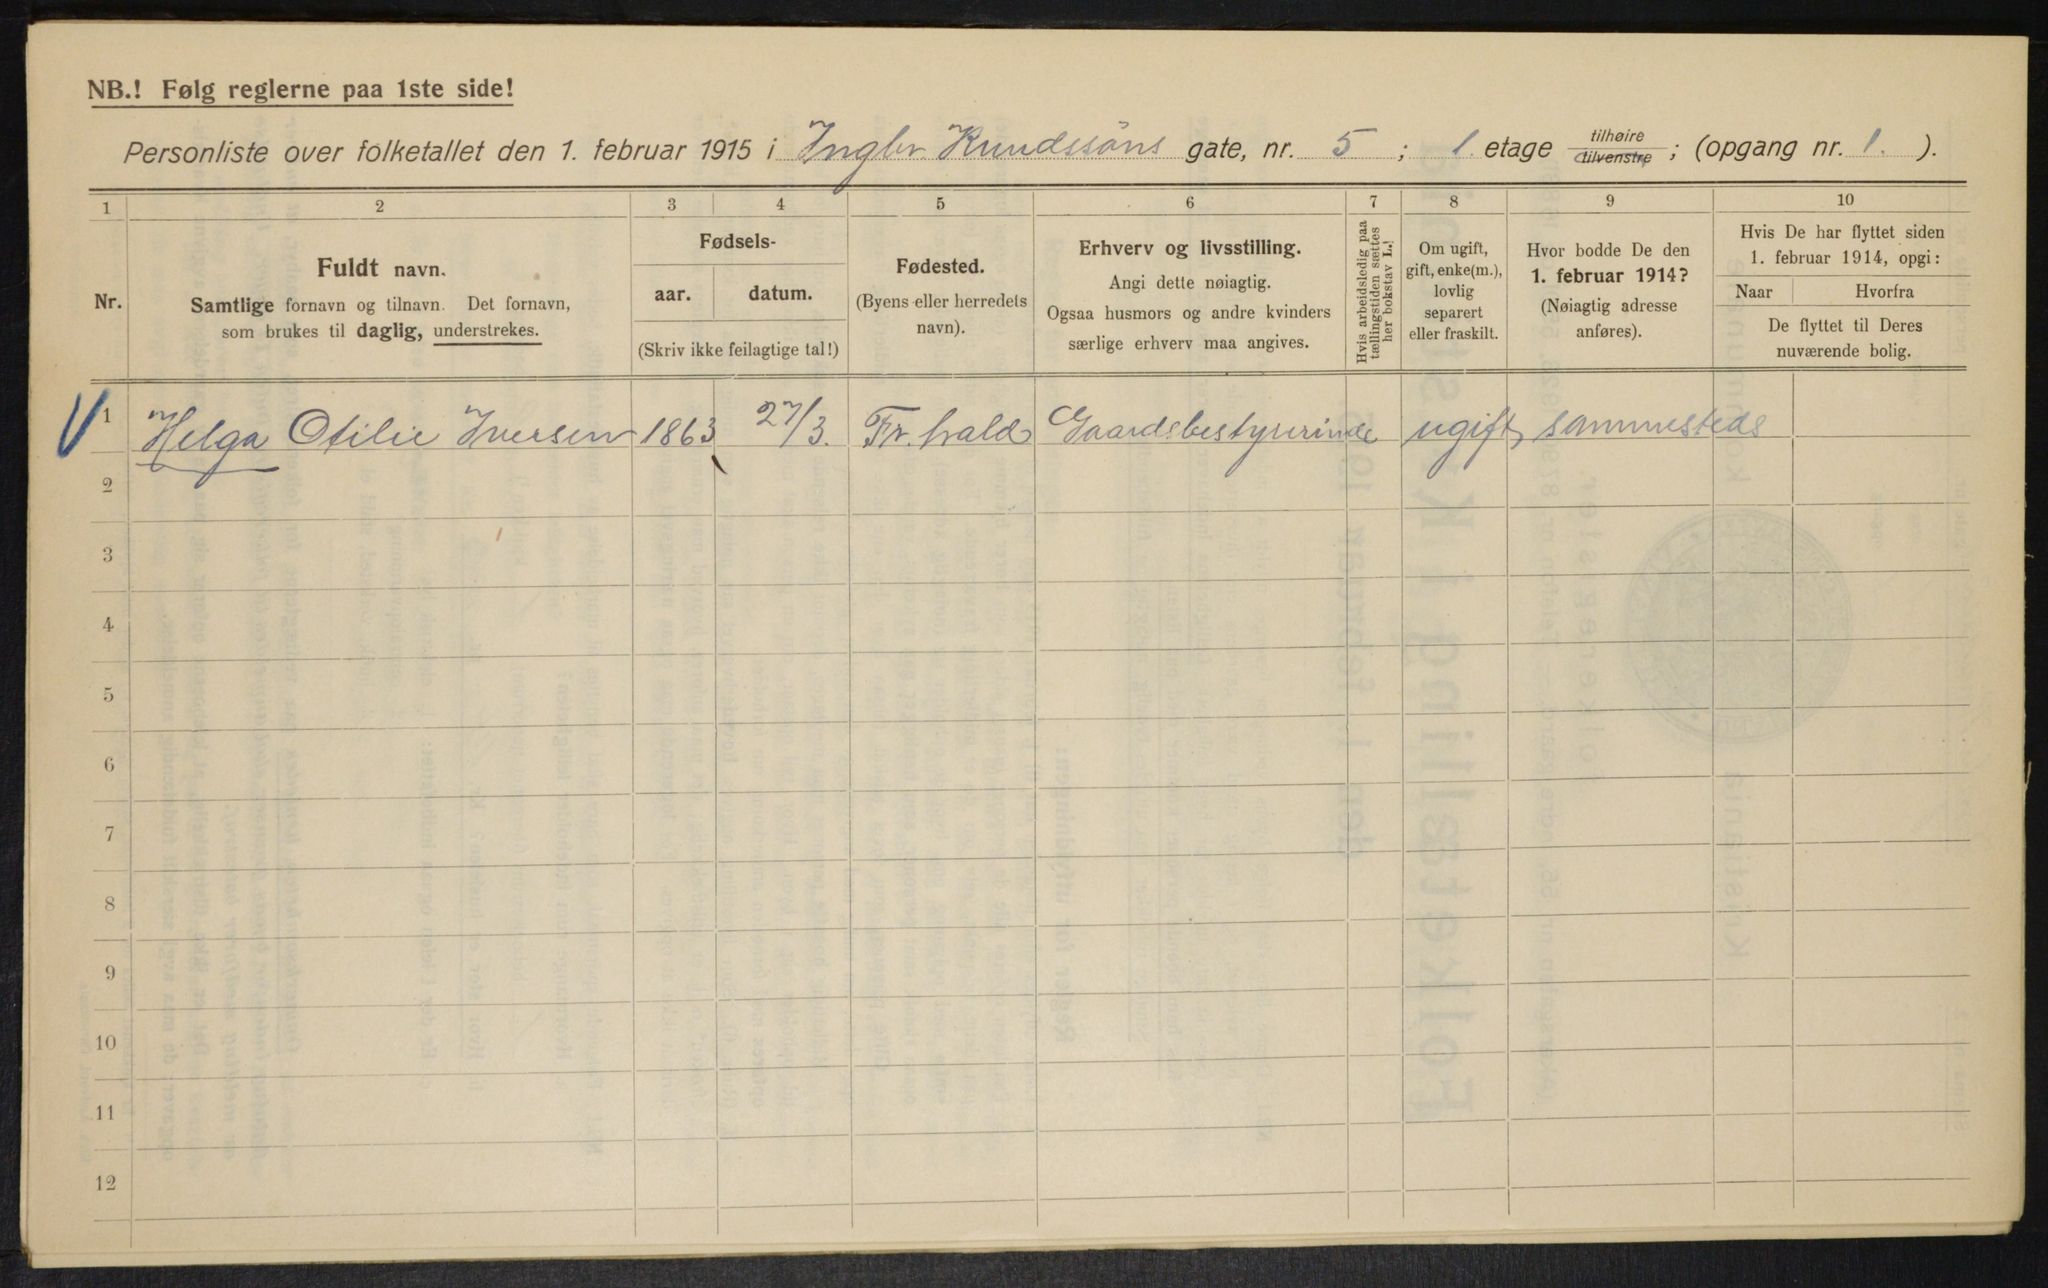 NB.! Følg reglerne paa 1ste side!
Personliste over folketallet den 1. februar 1915 i Ingbr. Knudssöns gate, nr. 5 ; 1. etage tilhøire tilvenstre ; (opgang nr. 1. ).
1 2 3 4 5 6 7 8 9 10
Nr.
Fuldt navn.
Samtlige fornavn og tilnavn. Det fornavn,
som brukes til daglig, understrekes.
Fødsels-
aar. datum.
(Skriv ikke feilagtige tal!)
Fødested.
(Byens eller herredets
navn).
Erhverv og livsstilling.
Angi dette nøiagtig.
Ogsaa husmors og andre kvinders
særlige erhverv maa angives.
Hvis arbeidsledig paa
tællingstiden sættes
her bokstav L.!
Om ugift,
gift, enke(m.),
lovlig
separert
eller fraskilt.
Hvor bodde De den
1. februar 1914?
(Nøiagtig adresse
anføres).
Hvis De har flyttet siden
1. februar 1914, opgi:
Naar Hvorfra
De flyttet til Deres
nuværende bolig.
1 Helga Otilie Iversen 1863 27/3. Fr. hald Gaardsbestyrerinde ugift sammesteds
2
3
4
5
6
7
8
9
10
11
12